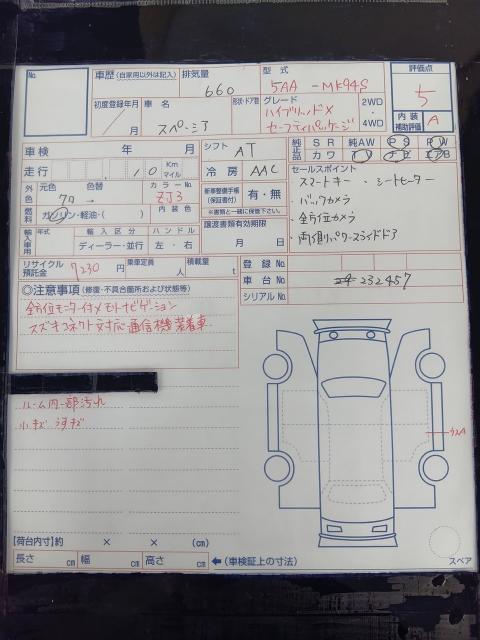 No.
車歴 (自家用以外は記入)
排気量
660
型式
5AA -MK94S
評価点
5
初度登録年月
/
月
車名
スペーシア
形状・ドア数
グレード
ハイブリッドX
セーフティパッケージ
2WD
・
4WD
内装
補助評価
A
車検 年 月
シフト
AT
純正品
SR 純AW PS PW
カワ TV ナビ エアB
走行
10
Km
マイル
冷房
AAC
セールスポイント
スマートキー ・シートヒーター
・バックカメラ
・全方位カメラ
・両側パワースライドドア
外色
元色
色替
クロ →
カラーNo.
ZJ3
新車整備手帳
(保証書付)
有・無
※書類と一緒に保管下さい。
燃料
ガソリン・軽油・( )
内装色
譲渡書類有効期限
月 日
輸入車用
年式
輸入区分
ディーラー・並行
ハンドル
左・右
リサイクル
預託金
7230 円
乗車定員
人
積載量
t
登録No.
車台No.
232457
シリアルNo.
◎注意事項 (修復・不具合箇所および状態等)
全方位モニター付メモリーナビゲーション
スズキコネクト対応通信機装着車
ルーム内一部汚れ
小キズ
ウスA
【荷台内寸】約 × × (cm)
長さ cm 幅 cm 高さ cm ←(車検証上の寸法)
スペア